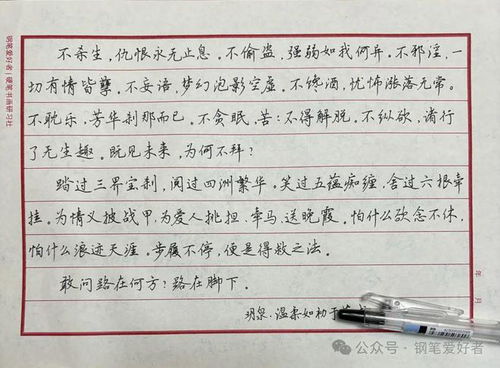 不杀生，仇恨永无止息。不偷盗，强弱如我何异。不邪淫，一
切有情皆孽。不妄语，梦幻泡影空虚。不馋酒，忧怖涨落无常。
不耽乐，芳华刹那而已。不贪眠，苦：不得解脱。不纵欲，诸行
了无生趣。既见未来，为何不拜？
踏过三界宝刹，阅过四洲繁华。笑过五蕴痴缠，舍过六根牵
挂。为情义披战甲，为爱人挑担、牵马、送晚霞。怕什么欲念不休，
怕什么浪迹天涯。步履不停，便是得救之法。
敢问路在何方？路在脚下。
玥泉·温柔如初于
年 月
钢笔爱好者｜硬笔书画研习社
公众号·钢笔爱好者